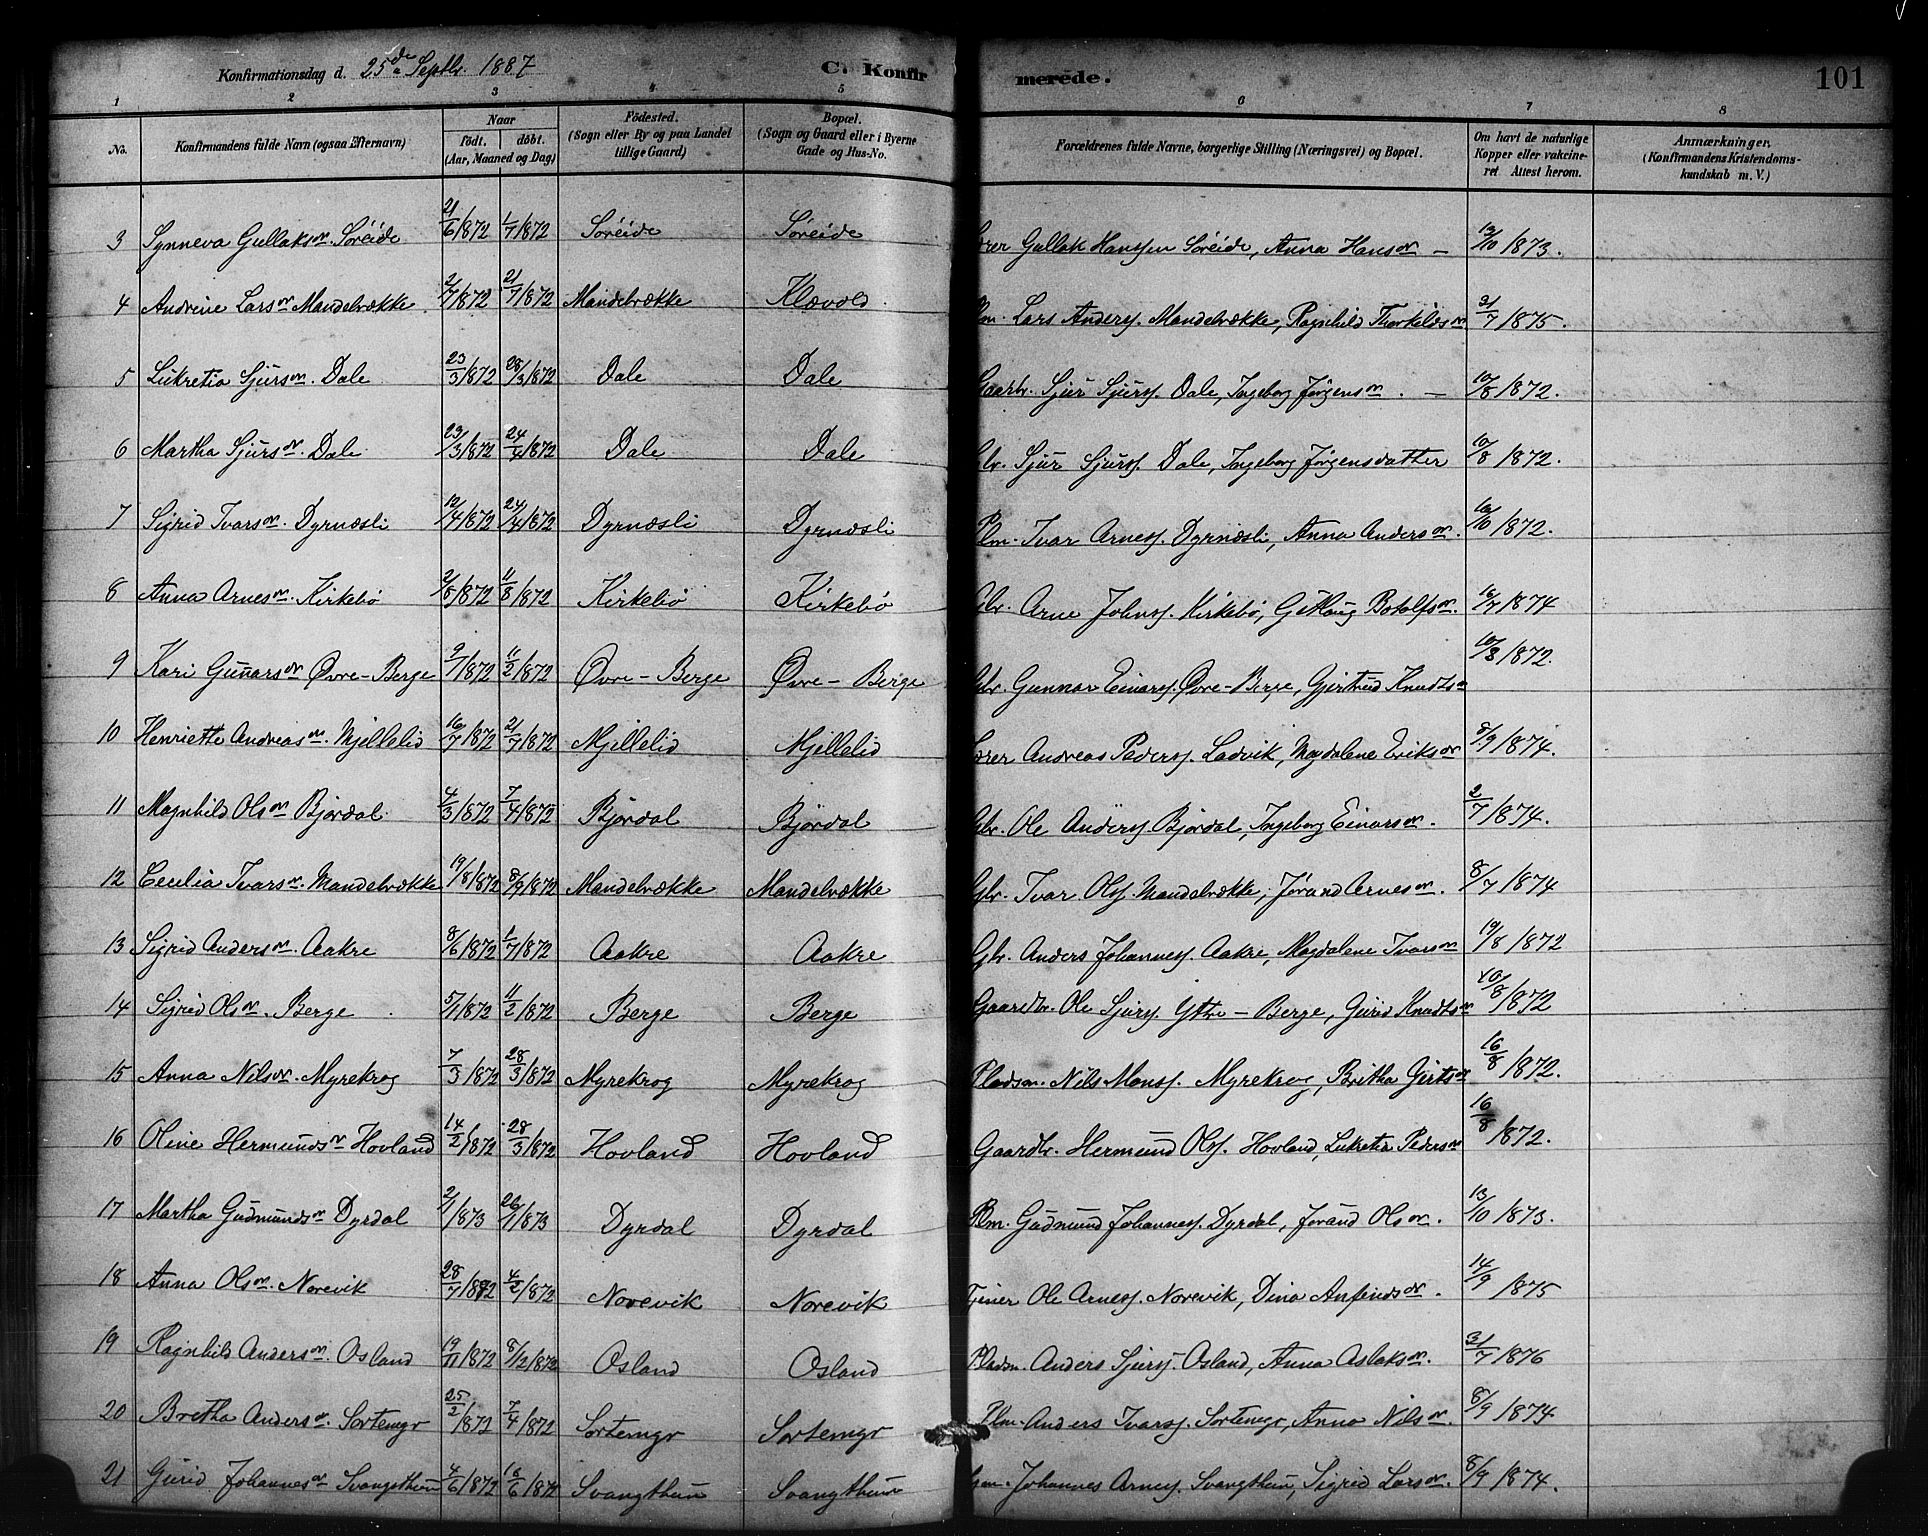 Konfirmationsdag d. 25de Septbr. 1887
C. Konfirmerede.
101
1 2 3 4 5 6 7 8
No.
Konfirmandens fulde Navn (ogsaa Efternavn)
Naar
födt. döbt.
(Aar, Maaned og Dag)
Födested.
(Sogn eller By og paa Landet
tillige Gaard)
Bopæl.
(Sogn og Gaard eller i Byerne
Gade og Hus-No.
Forældrenes fulde Navne, borgerlige Stilling (Næringsvei) og Bopæl.
Om havt de naturlige
Kopper eller vakcine-
ret Attest herom.
Anmærkninger.
(Konfirmandens Kristendoms-
kundskab m. V.)
3 Synneva Gullaksdr. Söreide 21/6/1872 1/7/1872 Söreide Söreide Lærer Gullak Hanssen Söreide, Anna Hansdr — 13/10 1873.
4 Andrine Larsdr Mandelrække 2/7/1872 21/7/1872 Mandelrække Klævold Plm. Lars Anderss. Mandelrække, Ragnhild Thorkildsdr 31/7 1875.
5 Lukretia Sjursdr. Dale 23/3/1872 28/3/1872 Dale Dale Gaardbr. Sjur Sjurss. Dale, Ingeborg Jörgensdr. — 10/8 1872.
6 Martha Sjursdr. Dale 23/3/1872 24/4/1872 Dale Dale Gbr. Sjur Sjurss. Dale, Ingeborg Jörgensdatter 10/8 1872.
7 Sigrid Ivarsdr. Dyrnæsli 12/4/1872 24/4/1872 Dyrnæsli Dyrnæsli Plm. Ivar Arness. Dyrnæsli, Anna Andersdr. 16/10 1872.
8 Anna Arnesdr. Kirkebö 2/8/1872 11/8/1872 Kirkebö Kirkebö Gbr. Arne Johnss. Kirkebö, Botolfsdr. 16/7 1874
9 Kari Gunnarsdr Övre-Berge 9/1/1872 11/2/1872 Övre-Berge Övre-Berge Gbr. Gunnar Einarss. Övre-Berge, Gjertrud Knudtsdr 10/8 1872.
10 Henriette Andreasdr. Mjellelid 16/7 1872 21/7/1872 Mjellelid Mjellelid Lærer Andreas Pederss. Ladvik, Magdalene Eriksdr 8/9 1874.
11 Magnhild Olsdr Björdal 4/3/1872 7/4/1872 Björdal Björdal Gbr. Ole Anderss. Björdal, Ingeborg Einarsdr. 2/7 1874.
12 Cecilia Ivarsdr. Mandelrække 19/8/1872 8/9/1872 Mandelrække Mandelrække Gbr. Ivar Olss. Mandelrække, Jörand Arnesdr. 8/7 1874
13 Sigrid Andersdr. Aakre 8/6/1872 1/7/1872 Aakre Aakre Gbr. Anders Johanness. Aakre, Magdalene Ivarsdr 19/8 1872
14 Sigrid Olsdr. Berge 5/1/1872 11/2/1872 Berge Berge Gaardbr. Ole Sjurss. Ytre-Berge, Gurid Knudtsdr 10/8/1872
15 Anna Nilsdr. Myrekrog 7/3/1872 28/3/1872 Myrekrog Myrekrog Pladsm. Nils Monss. Myrekrog, Britha Gertsdr 16/8 1872.
16 Oline Hermundsdr Hovland 14/2/1872 28/3/1872 Hovland Hovland Gaardbr. Hermund Olss. Hovland, Lukretia Pedersdr 16/8 1872.
17 Martha Gudmundsdr Dyrdal 2/1/1873 26/1/1873 Dyrdal Dyrdal Plm. Gudmund Johanness. Dyrdal, Jorand Olsdr. 13/10 1873.
18 Anna Olsdr. Norevik 28/1/1872 4/2/1872 Norevik Norevik Tjener Ole Arness. Norevik, Dina Anfindsdr. 14/9 1875
19 Ragnhild Andersdr. Osland 19/11/1872 8/12/1872 Osland Osland Pladsm. Anders Sjurss. Osland, Anna Aslaksdr. 31/7 1876
20 Bretha Andersdr. Sortemyr 25/2/1872 7/4/1872 Sortemyr Sortemyr Plm. Anders Ivarss. Sortemyr, Anna Nilsdr. 8/9 1874
21 Gurid Johannesdr Svangsthun 4/6/1872 16/6/1872 Svangthun Svangthun Johannes Arness. Svangthun, Sigrid Larsdr. 8/9 1874.